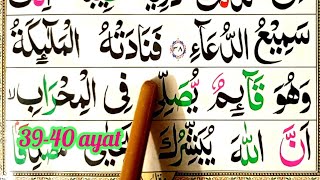 سَمِيْعُ الدُّعَآءِ ﴿۳۸﴾ فَنَادَتْهُ الْمَلٰٓئِكَةُ
وَهُوَ قَآئِمٌ يُّصَلِّيْ فِى الْمِحْرَابِ ۙ
اَنَّ اللّٰهَ يُبَشِّرُكَ
39-40 ayat